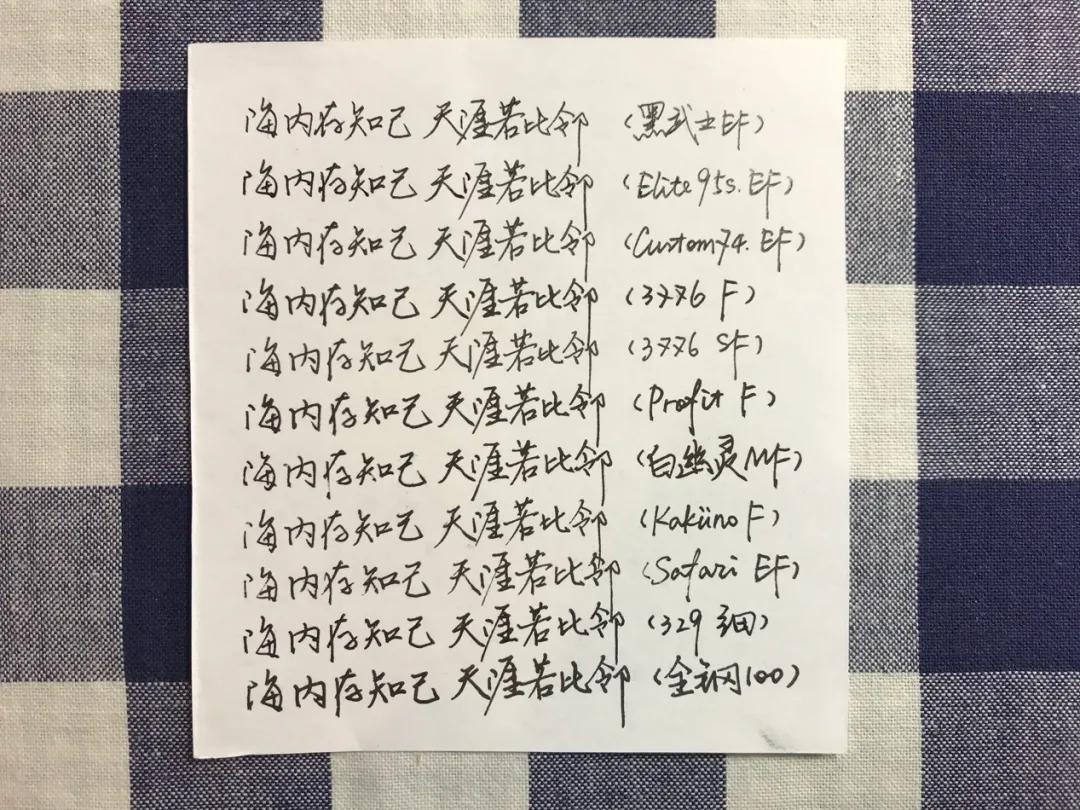 海内存知己 天涯若比邻 (黑武士EF)
海内存知己 天涯若比邻 (Elite95s.EF)
海内存知己 天涯若比邻 (Custom74.EF)
海内存知己 天涯若比邻 (3776 F)
海内存知己 天涯若比邻 (3776 SF)
海内存知己 天涯若比邻 (Profit F)
海内存知己 天涯若比邻 (白幽灵MF)
海内存知己 天涯若比邻 (Kaküno F)
海内存知己 天涯若比邻 (Safari EF)
海内存知己 天涯若比邻 (329 细)
海内存知己 天涯若比邻 (全钢100)